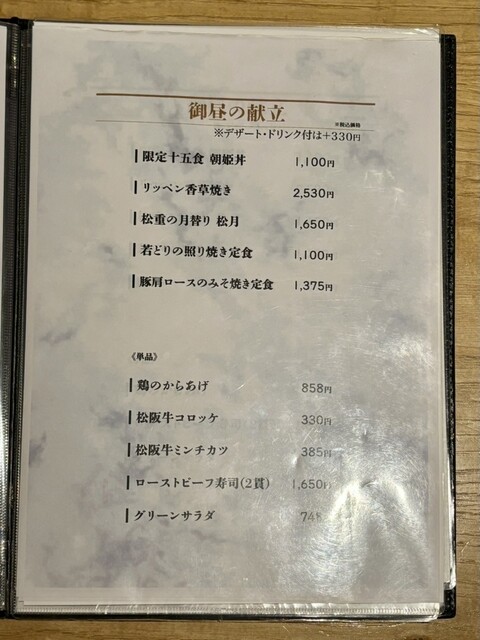 御昼の献立
※税込価格
※デザート・ドリンク付は+330円
限定十五食 朝姫丼 1,100円
リッペン香草焼き 2,530円
松重の月替り 松月 1,650円
若どりの照り焼き定食 1,100円
豚肩ロースのみそ焼き定食 1,375円
《単品》
鶏のからあげ 858円
松阪牛コロッケ 330円
松阪牛ミンチカツ 385円
ローストビーフ寿司(2貫) 1,650円
グリーンサラダ